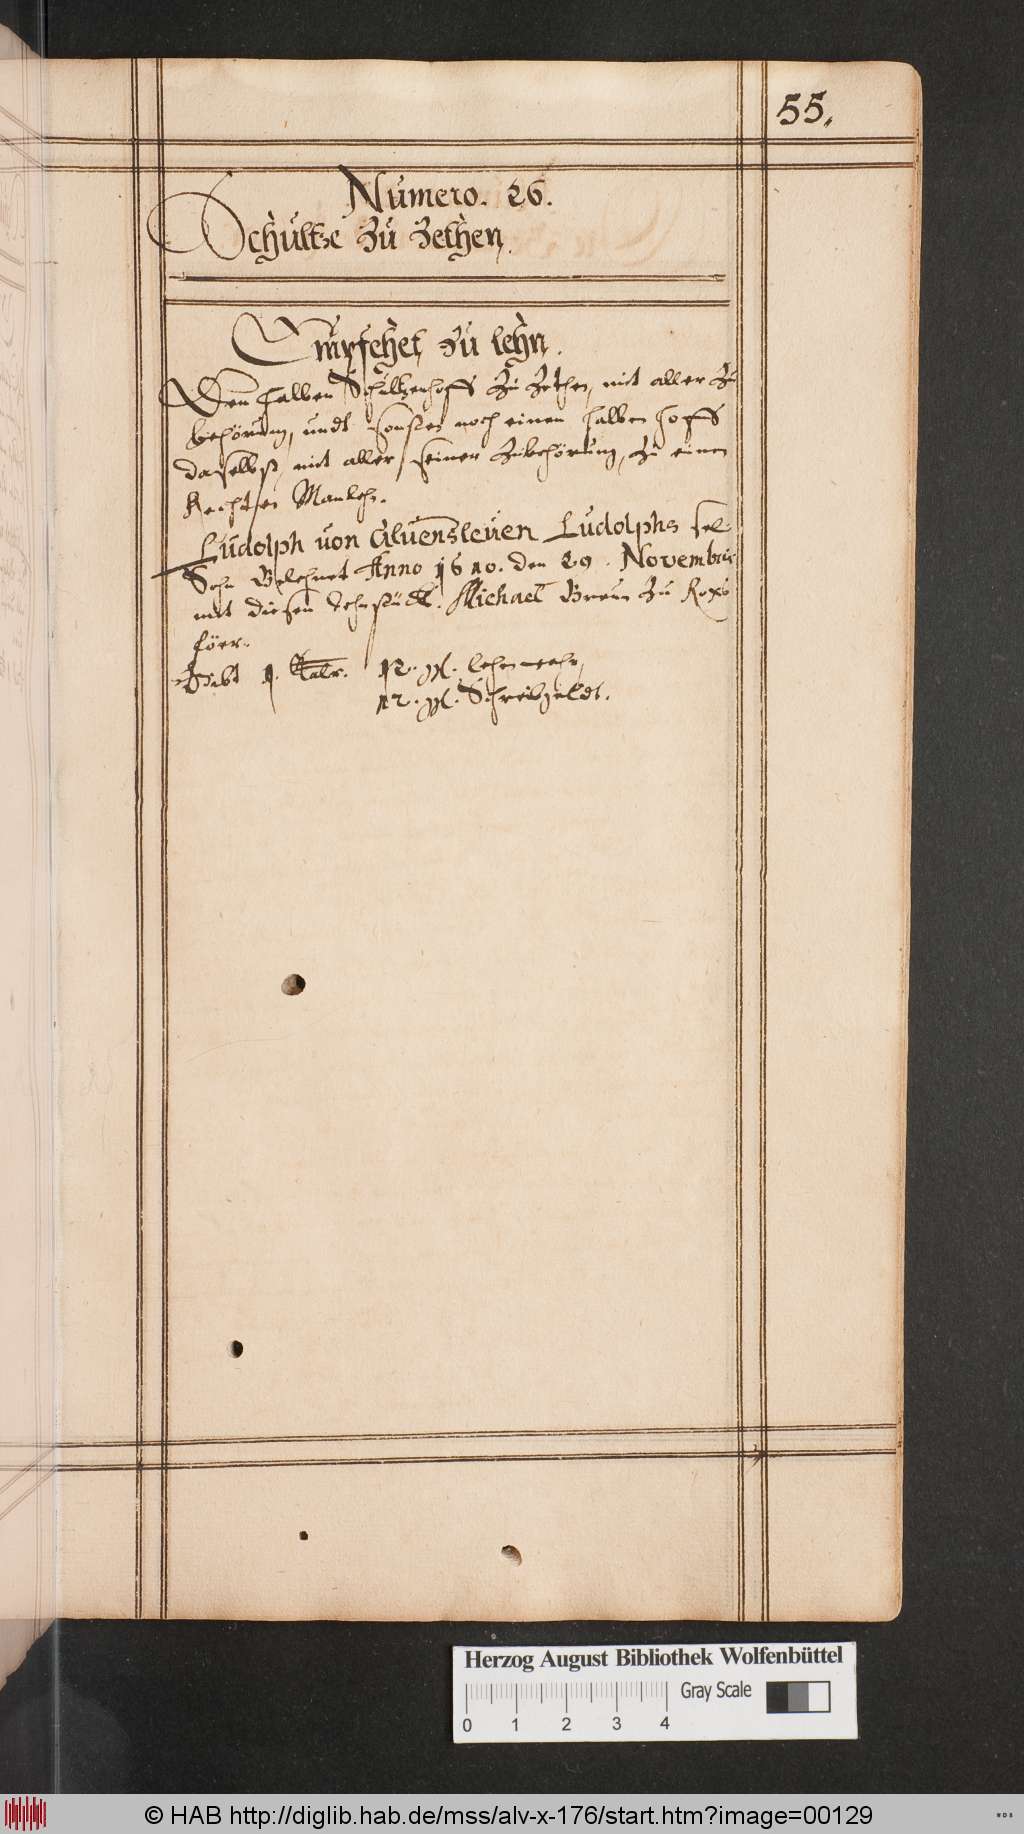 55.
Numero. 26.
Schultze Zu Zethen,
Empfehet zu lehn.
Den halben Schultzenhoff Zu Zethen, mit aller Zu
behörung, undt sonsten noch einen halben hoff
daselbst, mit aller seiner Zubehörung, Zu einen
Rechten Manlehn.
Ludolph von Alvensleven Ludolphs sel.
Sohn Belehnet Anno 1610. den 29. Novembris
mit diesen Lehnstück. Michael Breun Zu
föer.
Gibt 1. Talr. 12. gl. lehnwahr,
12. gl. Schreibgeldt.
Herzog August Bibliothek Wolfenbüttel
Gray Scale
0 1 2 3 4
© HAB http://diglib.hab.de/mss/alv-x-176/start.htm?image=00129
WDB